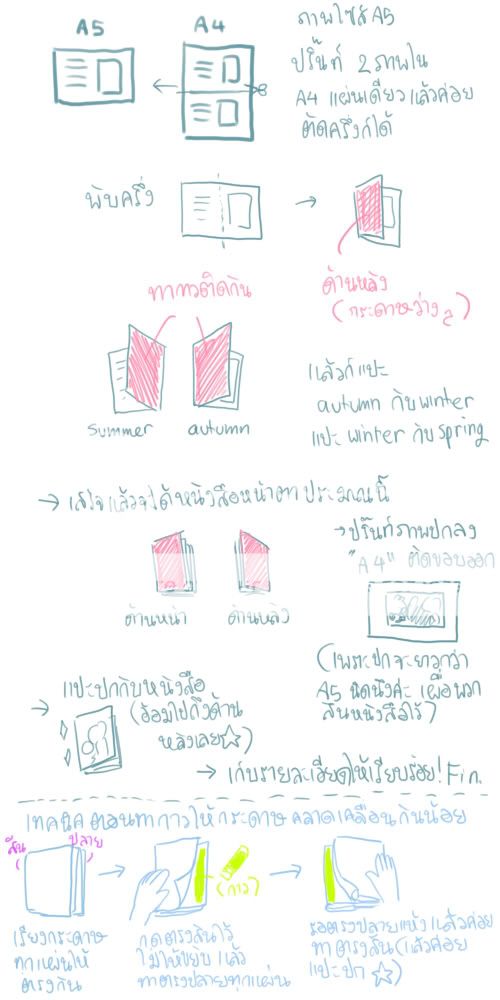 A5
A4
ภาพไซส์ A5
ปริ๊นท์ 2 ภาพใน
A4 แผ่นเดียวแล้วค่อย
ตัดครึ่งก็ได้
พับครึ่ง
ทากาวติดกัน
ด้านหลัง
(กระดาษว่างๆ)
summer
autumn
แล้วก็แปะ
autumn กับ winter
แปะ winter กับ spring
เสร็จแล้วจะได้หนังสือหน้าตาประมาณนี้
ด้านหน้า
ด้านหลัง
ปริ๊นท์ภาพปกลง
"A4" ตัดขอบออก
(เพราะปกจะยาวกว่า
A5 นิดนึงค่ะ เผื่อพวก
สันหนังสือไว้)
แปะปกกับหนังสือ
(อ้อมไปถึงด้าน
หลังเลย☆)
เก็บรายละเอียดให้เรียบร้อย! Fin.
เทคนิคตอนทากาวให้กระดาษคลาดเคลื่อนกันน้อย
สัน
ปลาย
(กาว)
เรียงกระดาษ
ทุกแผ่นให้
ตรงกัน
กดตรงสันไว้
ไม่ให้ขยับ แล้ว
ทาตรงปลายทุกแผ่น
รอตรงปลายแห้งแล้วค่อย
ทาตรงสัน(แล้วค่อย
แปะปก☆)